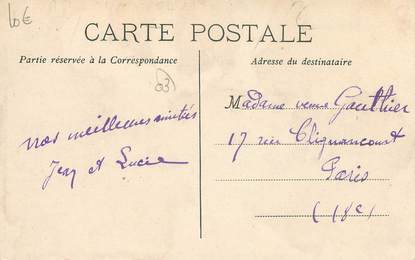 60€
CARTE POSTALE
Partie réservée à la Correspondance
Adresse du destinataire
(03)
nos meilleures amitiés
Jean et Lucie
Madame veuve Gauthier
17 rue Clignancourt
Paris
(18e)